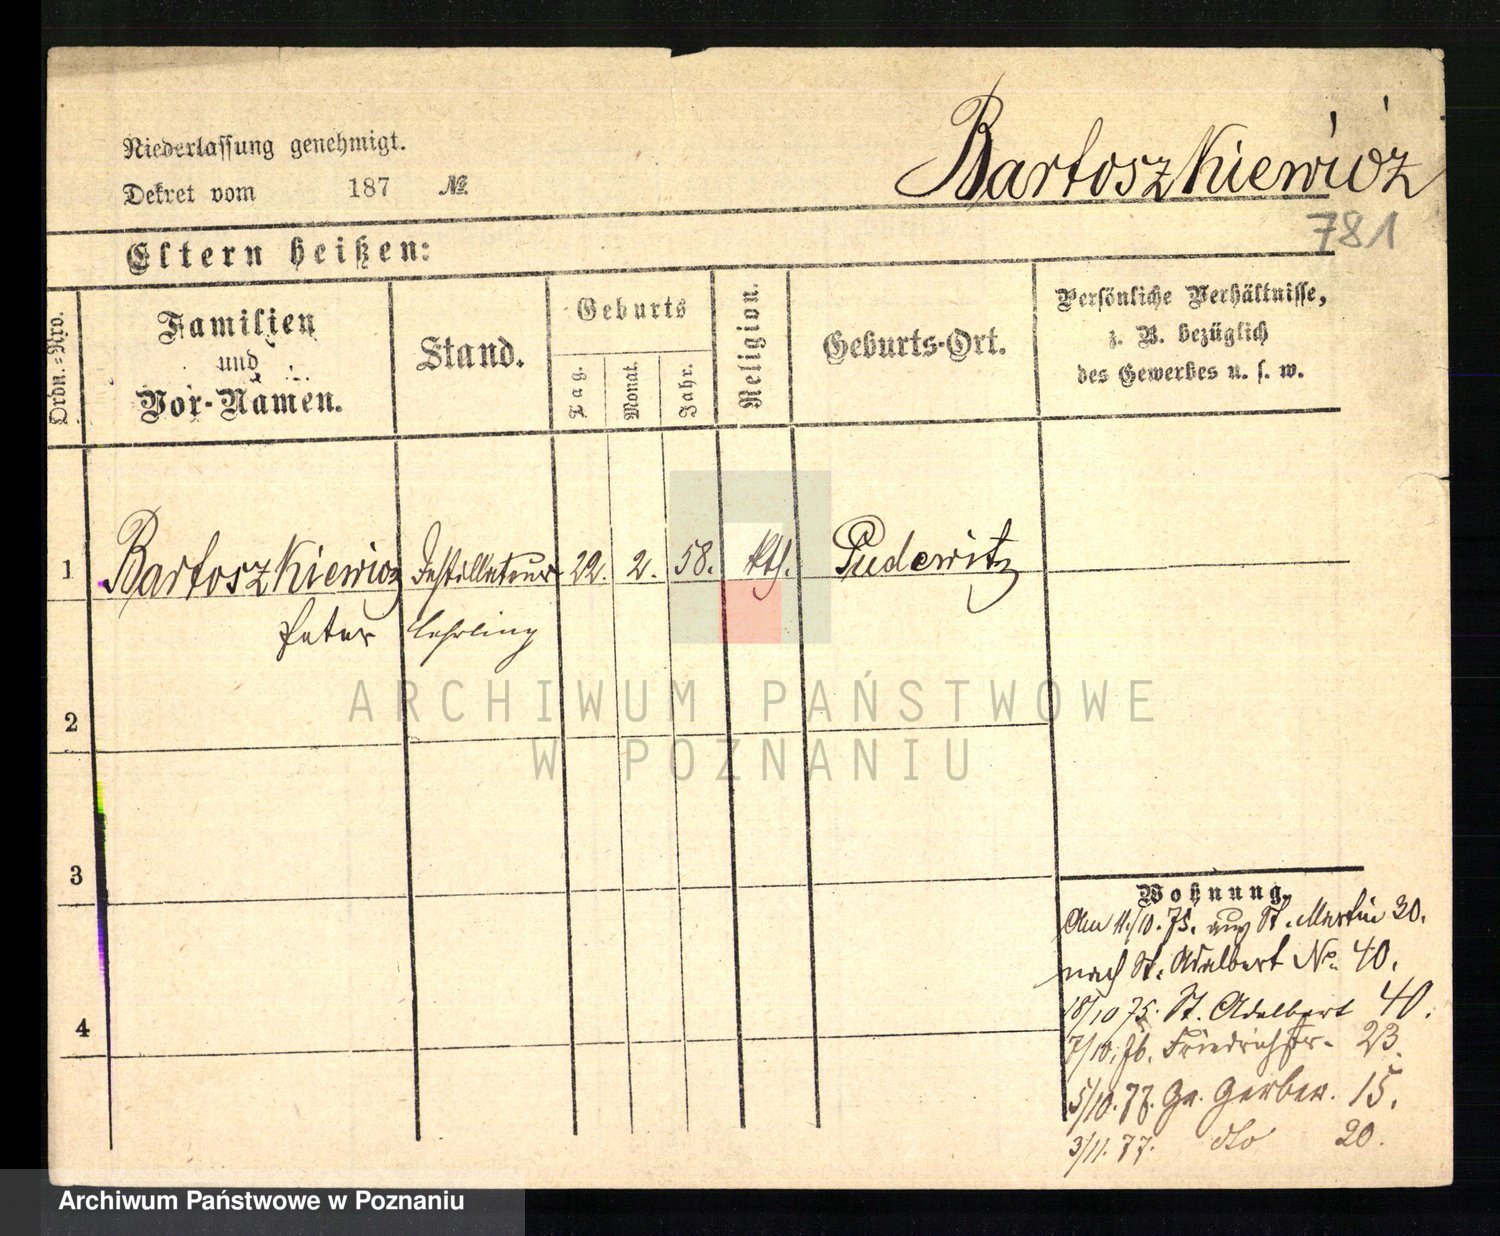 Bartoszkiewicz
781
Niederlassung genehmigt.
Dekret vom 187 №
Eltern heißen:
Ordn.-Nro.
Familien
und
Vor-Namen.
Stand.
Geburts
Tag.
Monat.
Jahr.
Religion.
Geburts-Ort.
Persönliche Verhältnisse,
z. B. bezüglich
des Gewerbes u. s. w.
1 Bartoszkiewicz Destillateur 22. 2. 58. kth. Pudewitz
Peter lehrling
2
3
4
Wohnung.
Am 11/10. 75. aus St. Martin 30.
nach St. Adalbert No. 40.
18/10 75. St. Adalbert 40.
7/10. 76. Friedrichstr. 23.
5/10. 77. Gr. Gerber. 15.
3/11. 77. dto 20.
ARCHIWUM PAŃSTWOWE
W POZNANIU
Archiwum Państwowe w Poznaniu